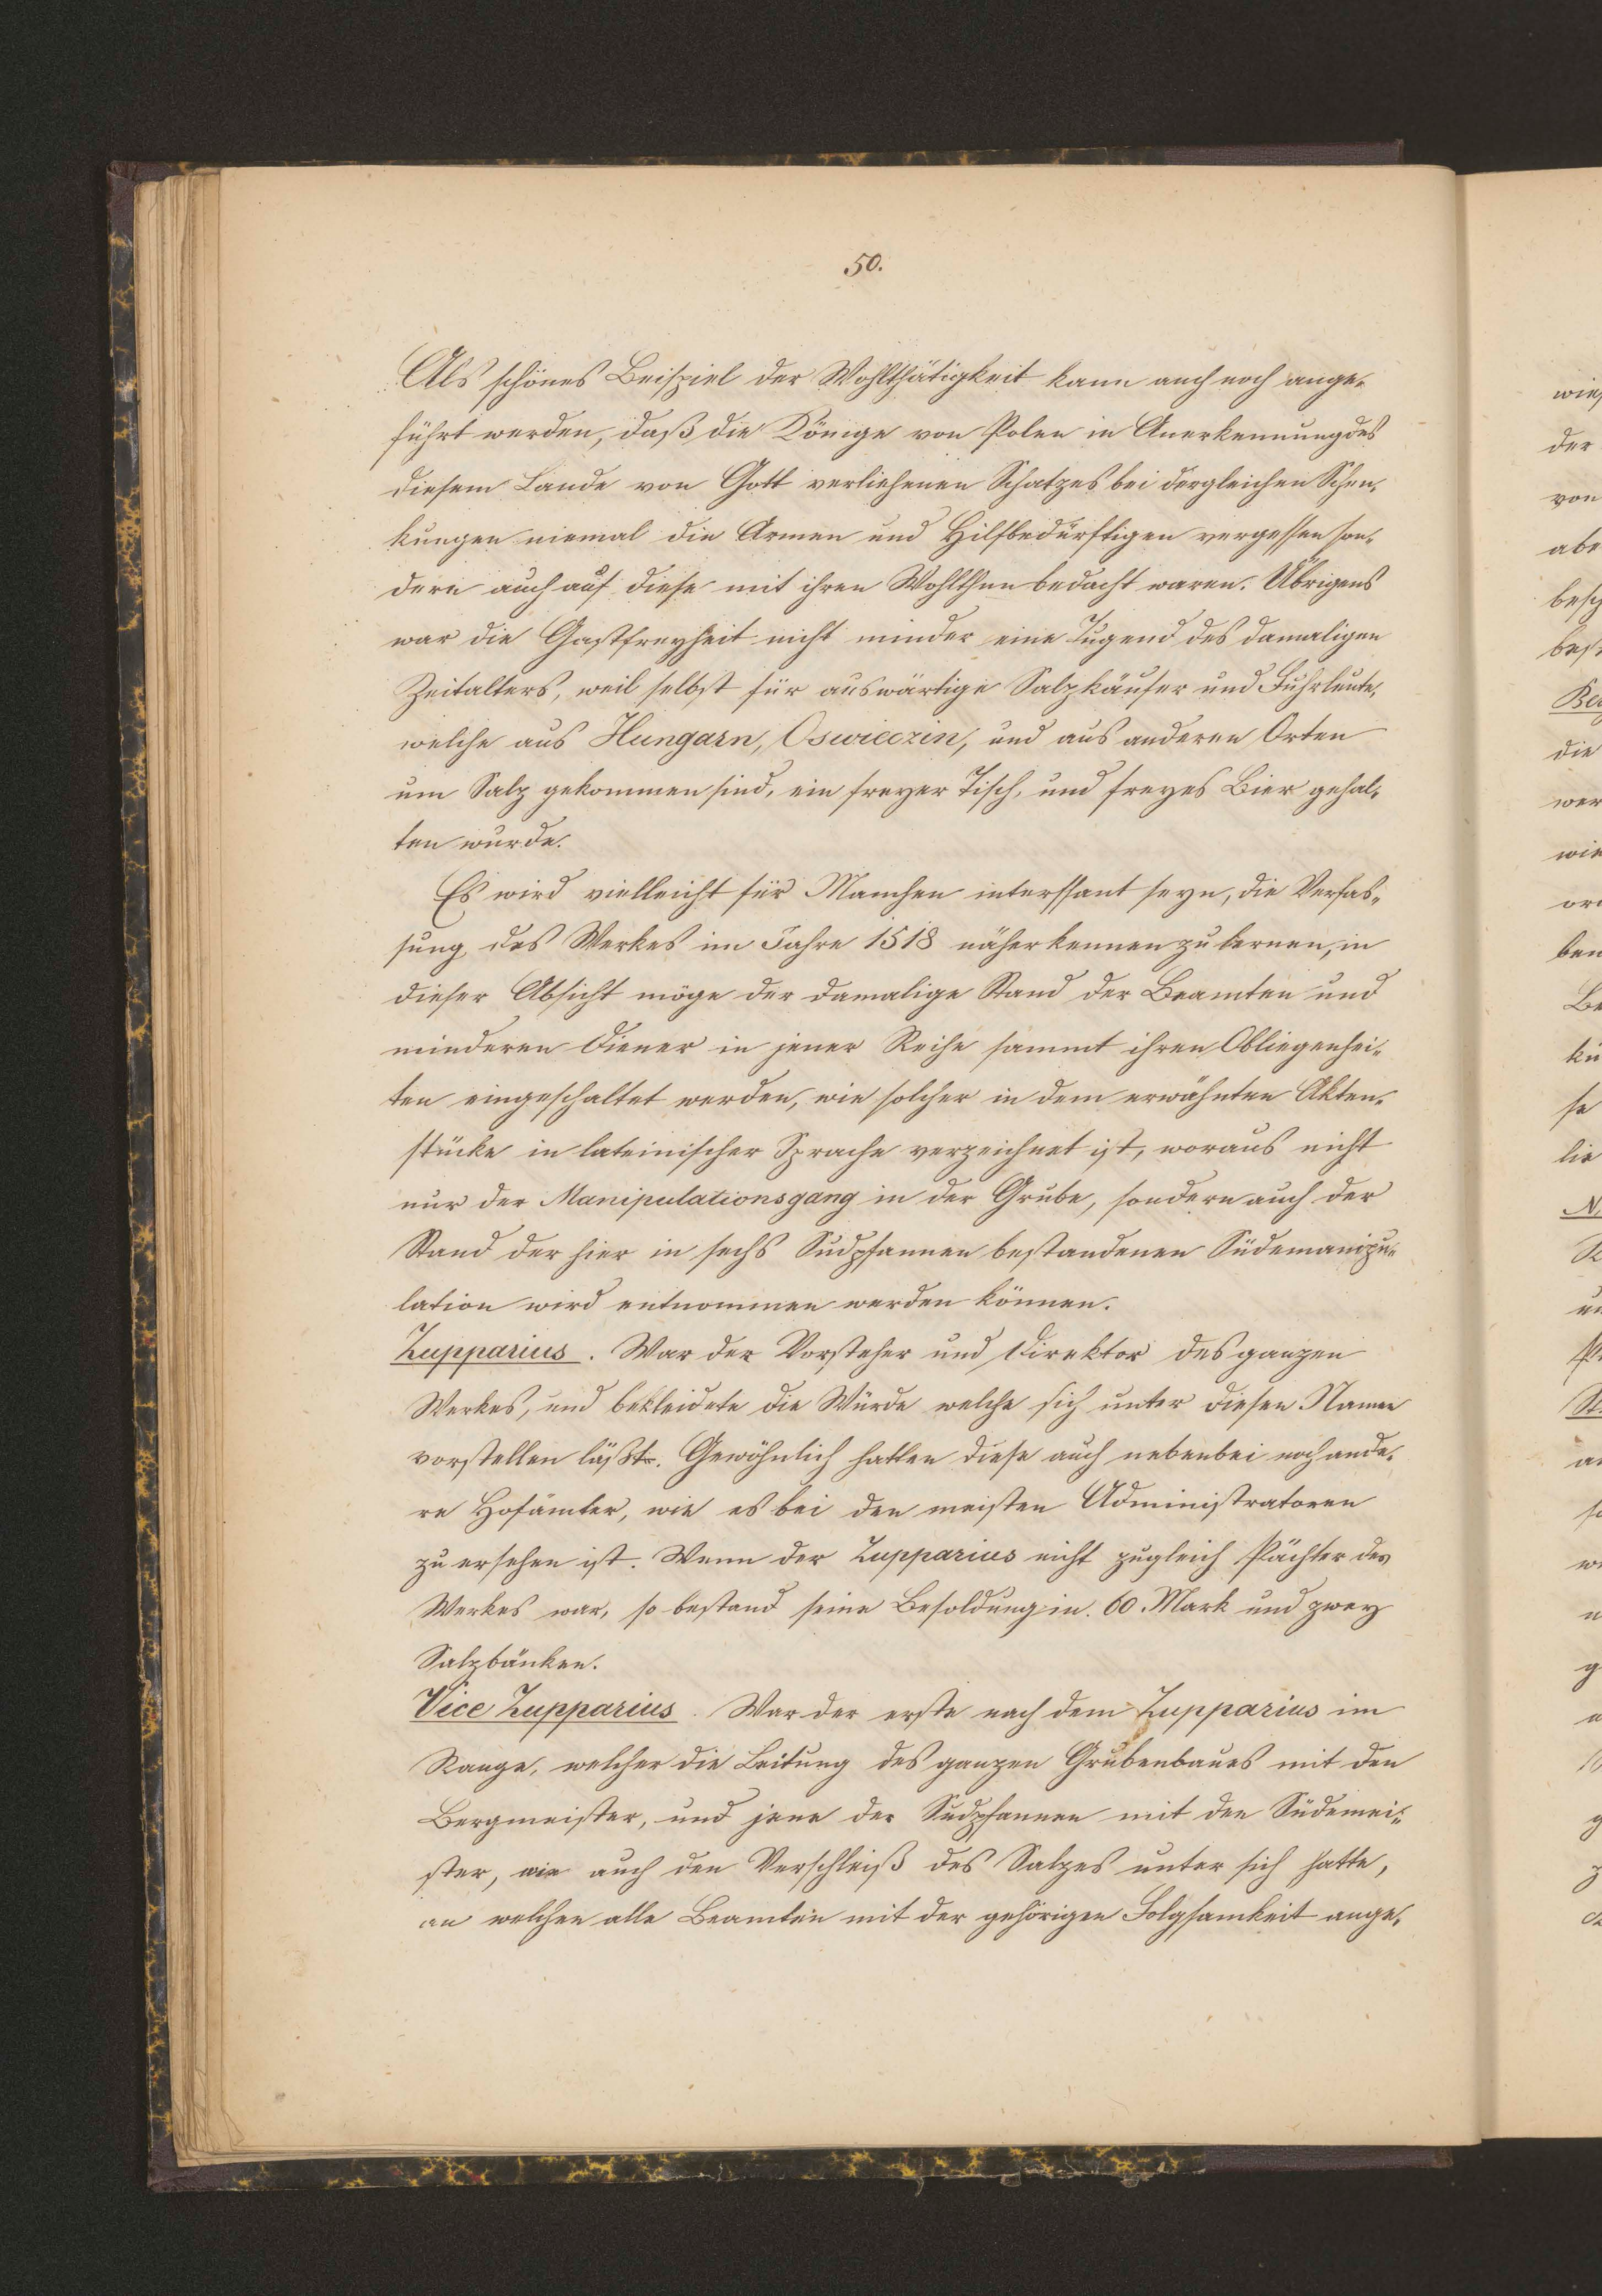 50.
Als schönes Beispiel der Wohlthätigkeit kann auch noch ange-
führt werden, daß die Könige von Polen in Anerkennung des
diesem Lande von Gott verliehenen Schatzes bei dergleichen Schen-
kungen niemal die Armen und Hilfbedürftigen vergessen son-
dern auch auf diese mit ihren Wohlthun bedacht waren. Übrigens
war die Gastfreyheit nicht minder eine Tugend des damaligen
Zeitalters, weil selbst für auswärtige Salzkäufer und Fuhrleute,
welche aus Hungarn, Oswieczin, und aus anderen Orten
um Salz gekommen sind, ein freyer Tisch, und freyes Bier gehal-
ten wurde.
Es wird vielleicht für Manchen interssant seyn, die Verfas-
sung des Werkes im Jahre 1518 näher kennen zu lernen, in
dieser Absicht möge der damalige Stand der Beamten und
minderen Diener in jener Reihe sammt ihren Obliegenhei-
ten eingeschaltet werden, wie solcher in dem erwähnten Akten-
stücke in lateinischer Sprache verzeichnet ist, woraus nicht
nur der Manipulationsgang in der Grube, sondern auch der
Stand der hier in sechs Sudpfannen bestandenen Südemanipu-
lation wird entnommen werden können.
Zupparius. War der Vorsteher und Direktor des ganzen
Werkes, und bekleidete die Würde welche sich unter diesen Namen
vorstellen läßt. Gewöhnlich hatten diese auch nebenbei noch ande-
re Hofämter, wie es bei den meisten Administratoren
zu ersehen ist. Wenn der Zupparius nicht zugleich Pächter des
Werkes war, so bestand seine Besoldung in 60 Mark und zwey
Salzbänken.
Vice Zupparius. War der erste nach dem Zupparius im
Range, welcher die Leitung des ganzen Grubenbaues mit den
Bergmeister, und jene der Sudpfannen mit den Südemei-
ster, wie auch den Verschleiß des Salzes unter sich hatte,
an welchen alle Beamten mit der gehörigen Folgsamkeit ange-